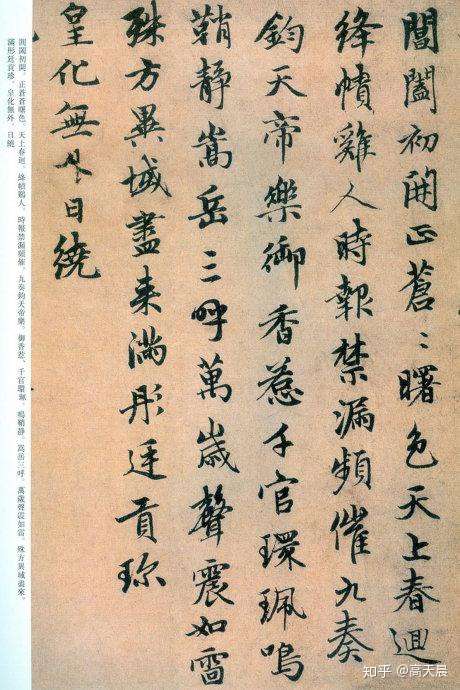 閶闔初開正蒼〻曙色天上春迴
絳幘雞人時報禁漏頻催九奏
鈞天帝樂御香惹千官環珮鳴
鞘靜嵩岳三呼萬歲聲震如雷
殊方異域盡来滿彤廷貢珎
皇化無外日繞
閶闔初開。正蒼蒼曙色。天上春迴。絳幘鷄人。時報禁漏頻催。九奏鈞天帝樂。御香惹。千官環珮。鳴鞘靜。嵩岳三呼。萬歲聲震如雷。殊方異域盡來。
滿彤廷貢珍。皇化無外。日繞
知乎 @高天晨